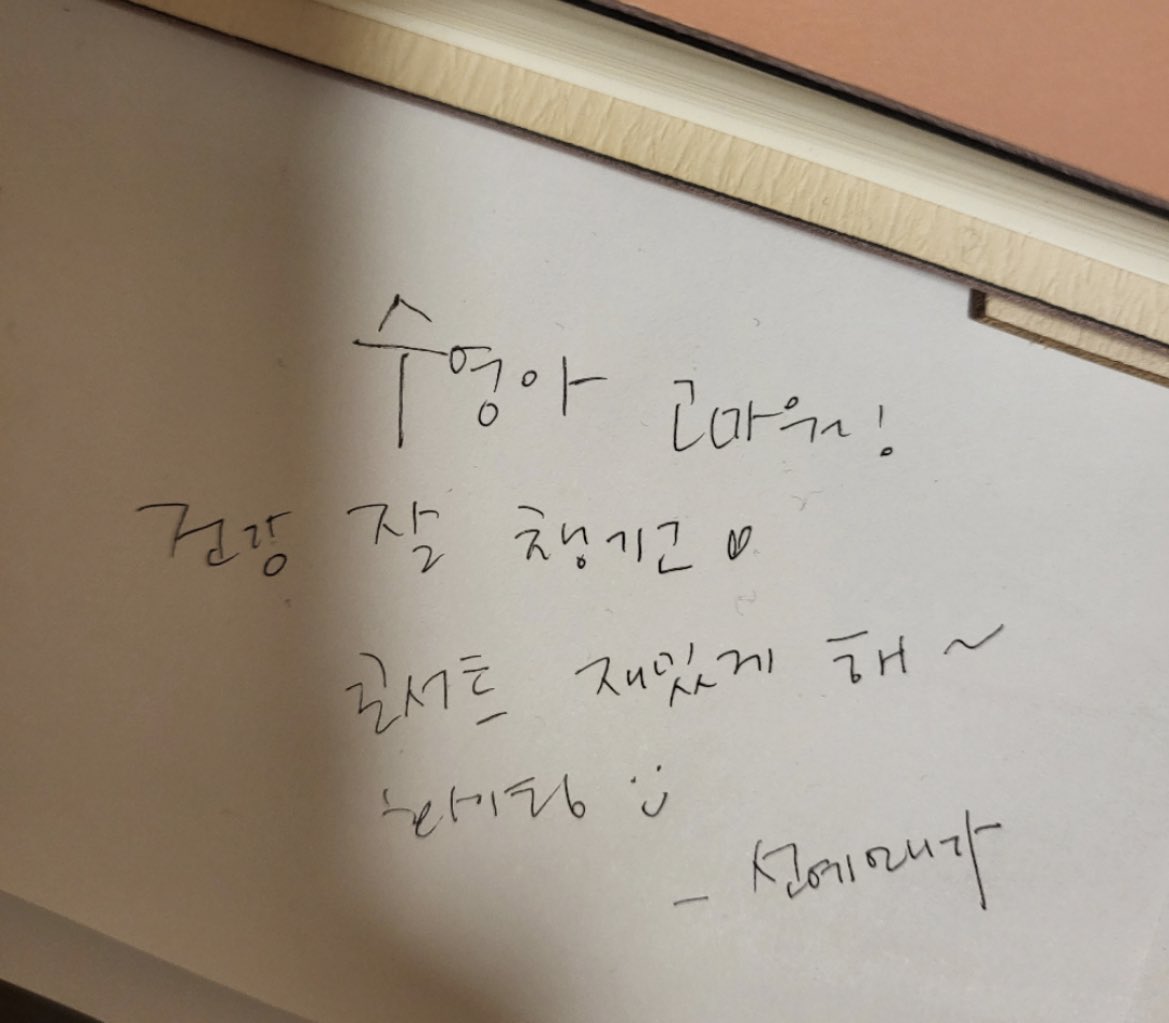 수영아 고마워~!
건강 잘 챙기고 ♡
콘서트 재밌게 해~
화이팅 :)
- 선예언니가